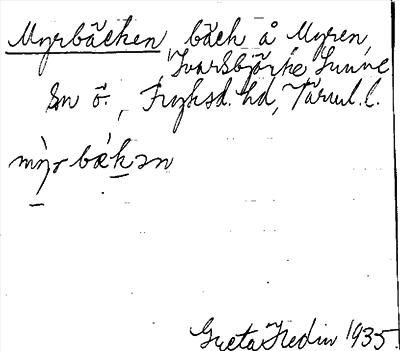 Myrbäcken, bäck å Myren,
Ivarsbjörke Sunne
sn ö., Fryksd. hd, Värml. l.
mỳr bækən
Greta Hedin 1935.